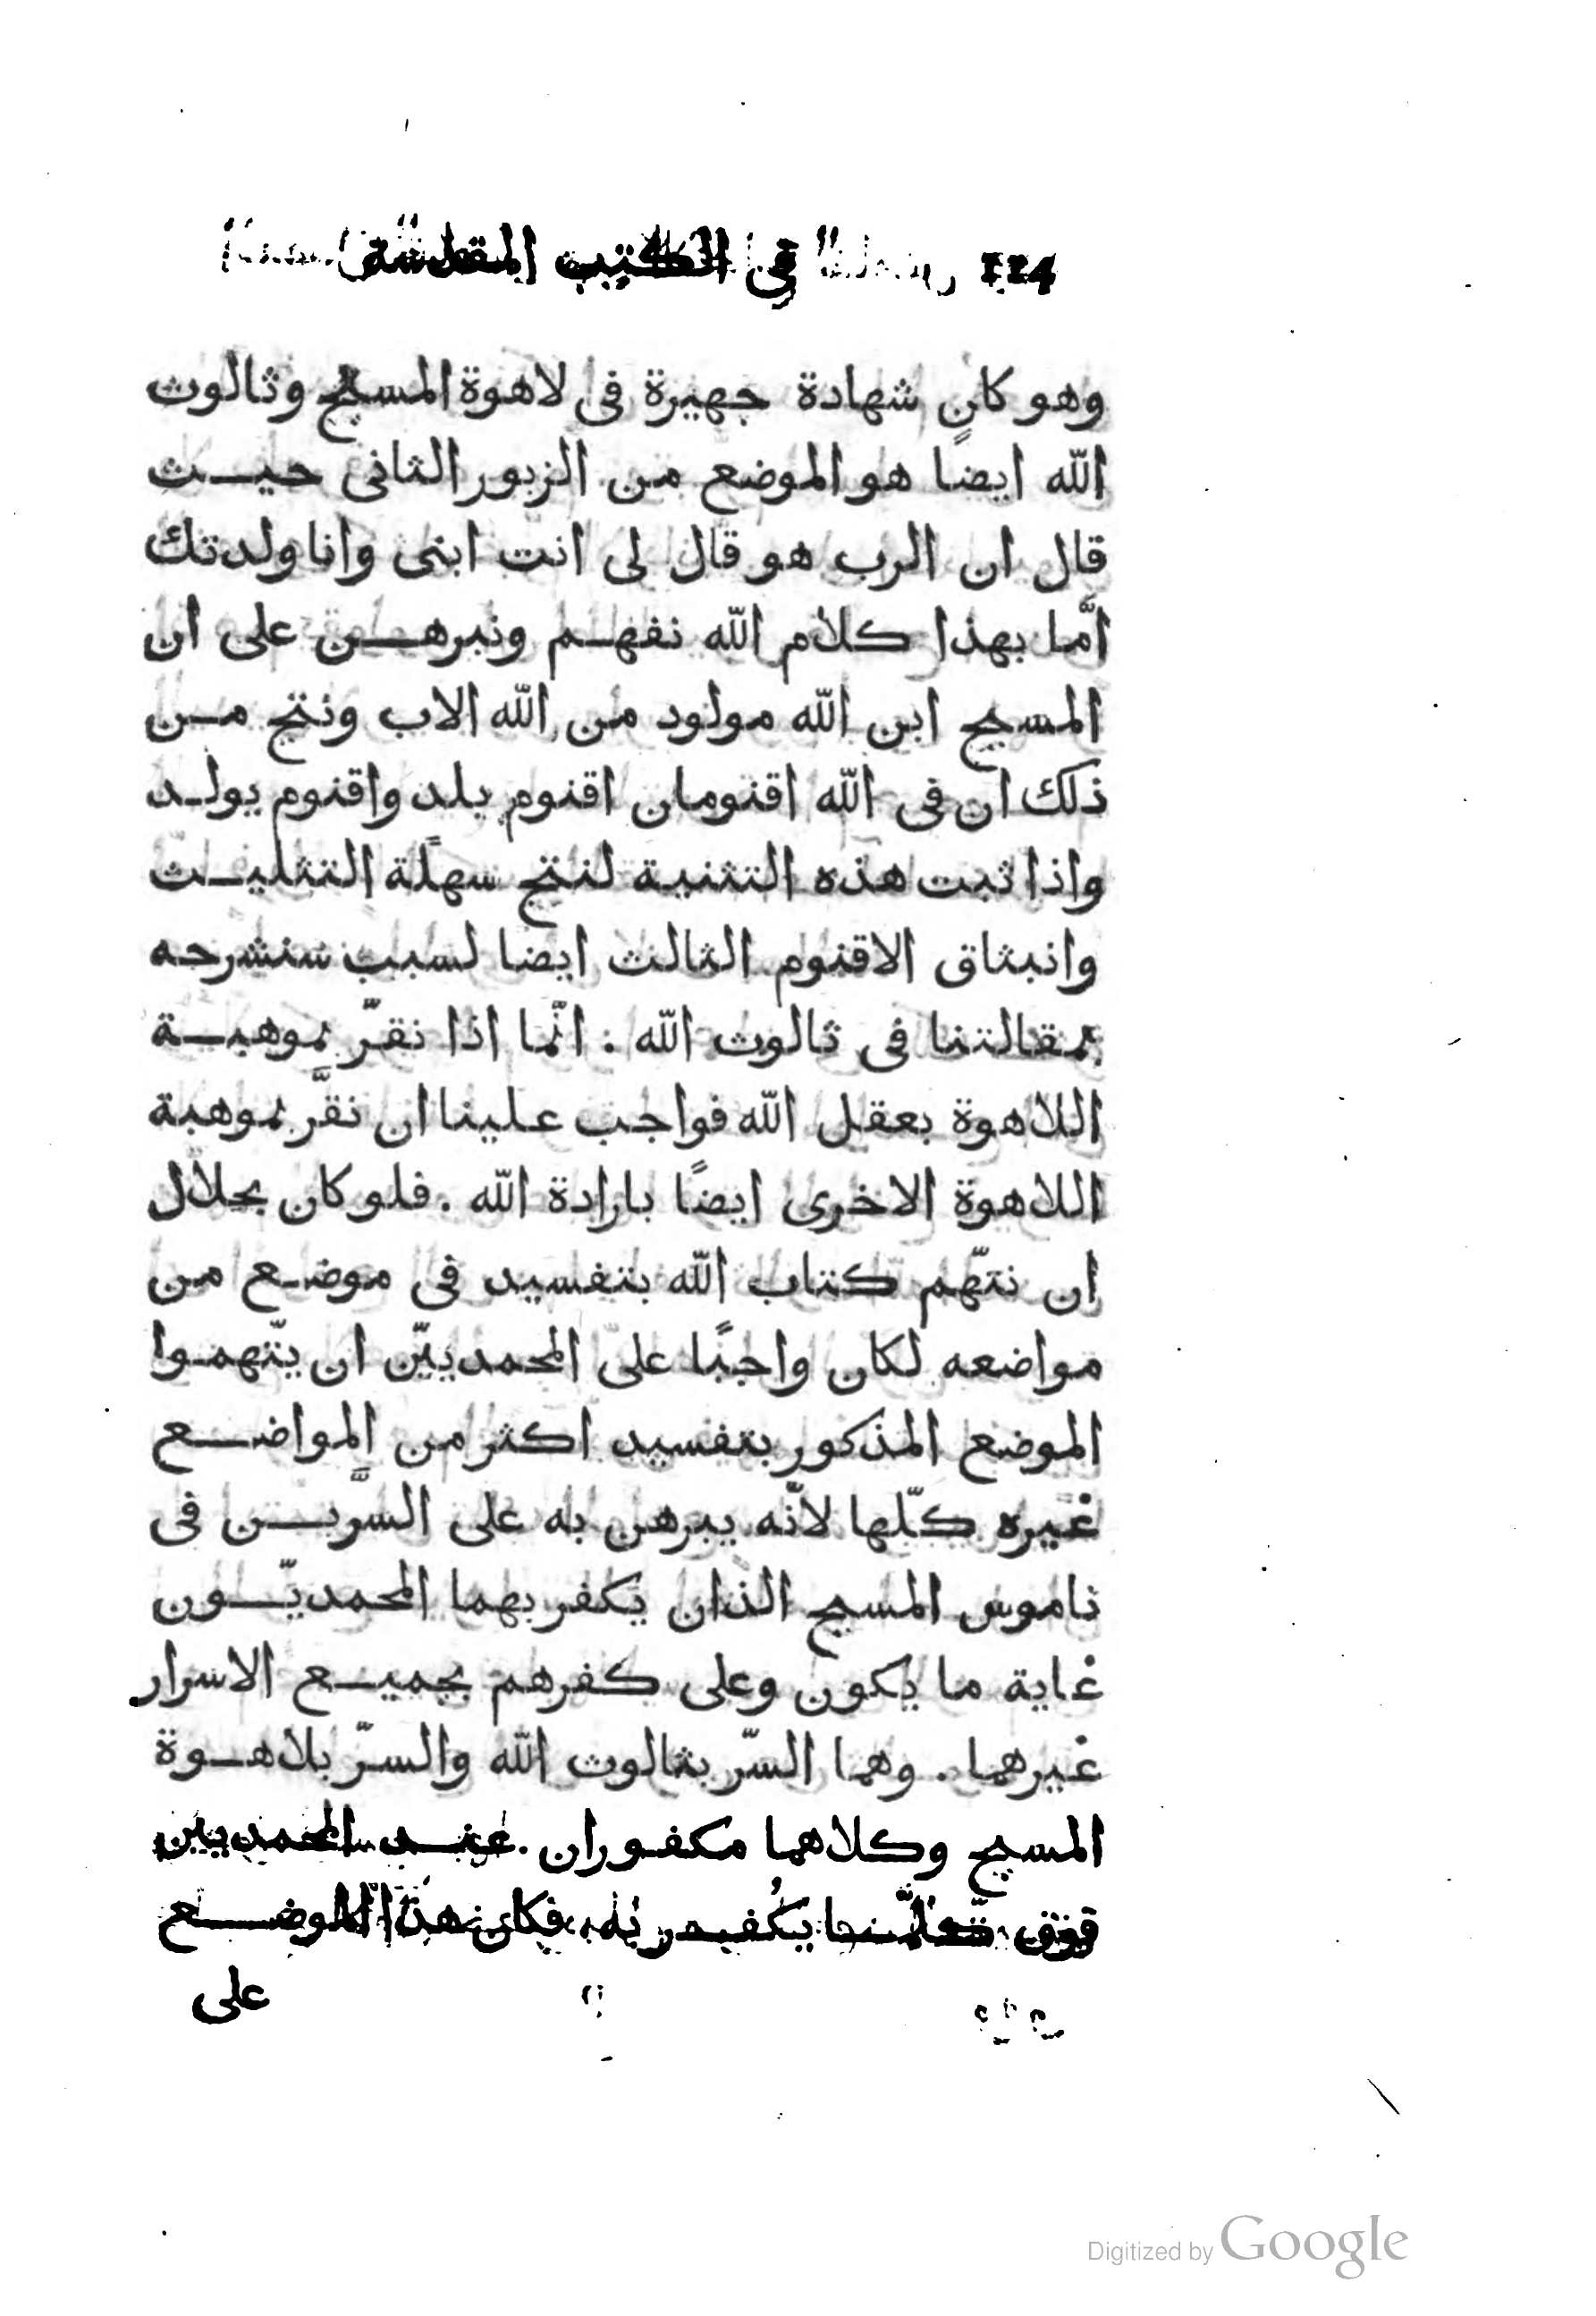 124 في الكتب المقدسة
وهو كان شهادة جهيرة في لاهوة المسيح وثالوث
الله ايضًا هو الموضع من الزبور الثانى حيث
قال ان الرب هو قال لى انت ابنى وانا ولدتك
امّا بهذا كلام الله نفهم ونبرهن على ان
المسيح ابن الله مولود من الله الاب ونتج من
ذلك ان فى الله اقنومان اقنوم يلد واقنوم يولد
واذا ثبت هذه التثنية لنتج سهلًة التثليث
وانبثاق الاقنوم الثالث ايضا لسبب سنشرحه
بمقالتنا فى ثالوث الله : انّما اذا نقرّ بموهبة
اللاهوة بعقل الله فواجب علينا ان نقرّ بموهبة
اللاهوة الاخرى ايضًا بارادة الله . فلو كان بحلال
ان نتّهم كتاب الله بتفسيد فى موضع من
مواضعه لكان واجبًا على المحمديّين ان يتّهموا
الموضع المذكور بتفسيد اكثر من المواضع
غيره كلّها لانّه يبرهن به على السرّين فى
ناموس المسيح الذان يكفر بهما المحمديّون
غاية ما يكون وعلى كفرهم بجميع الاسرار
غيرهما . وهما السرّ بثالوث الله والسرّ بلاهوة
المسيح وكلاهما مكفوران . عند المحمديين
فوق به فكان هذا الموضع
على
Digitized by Google